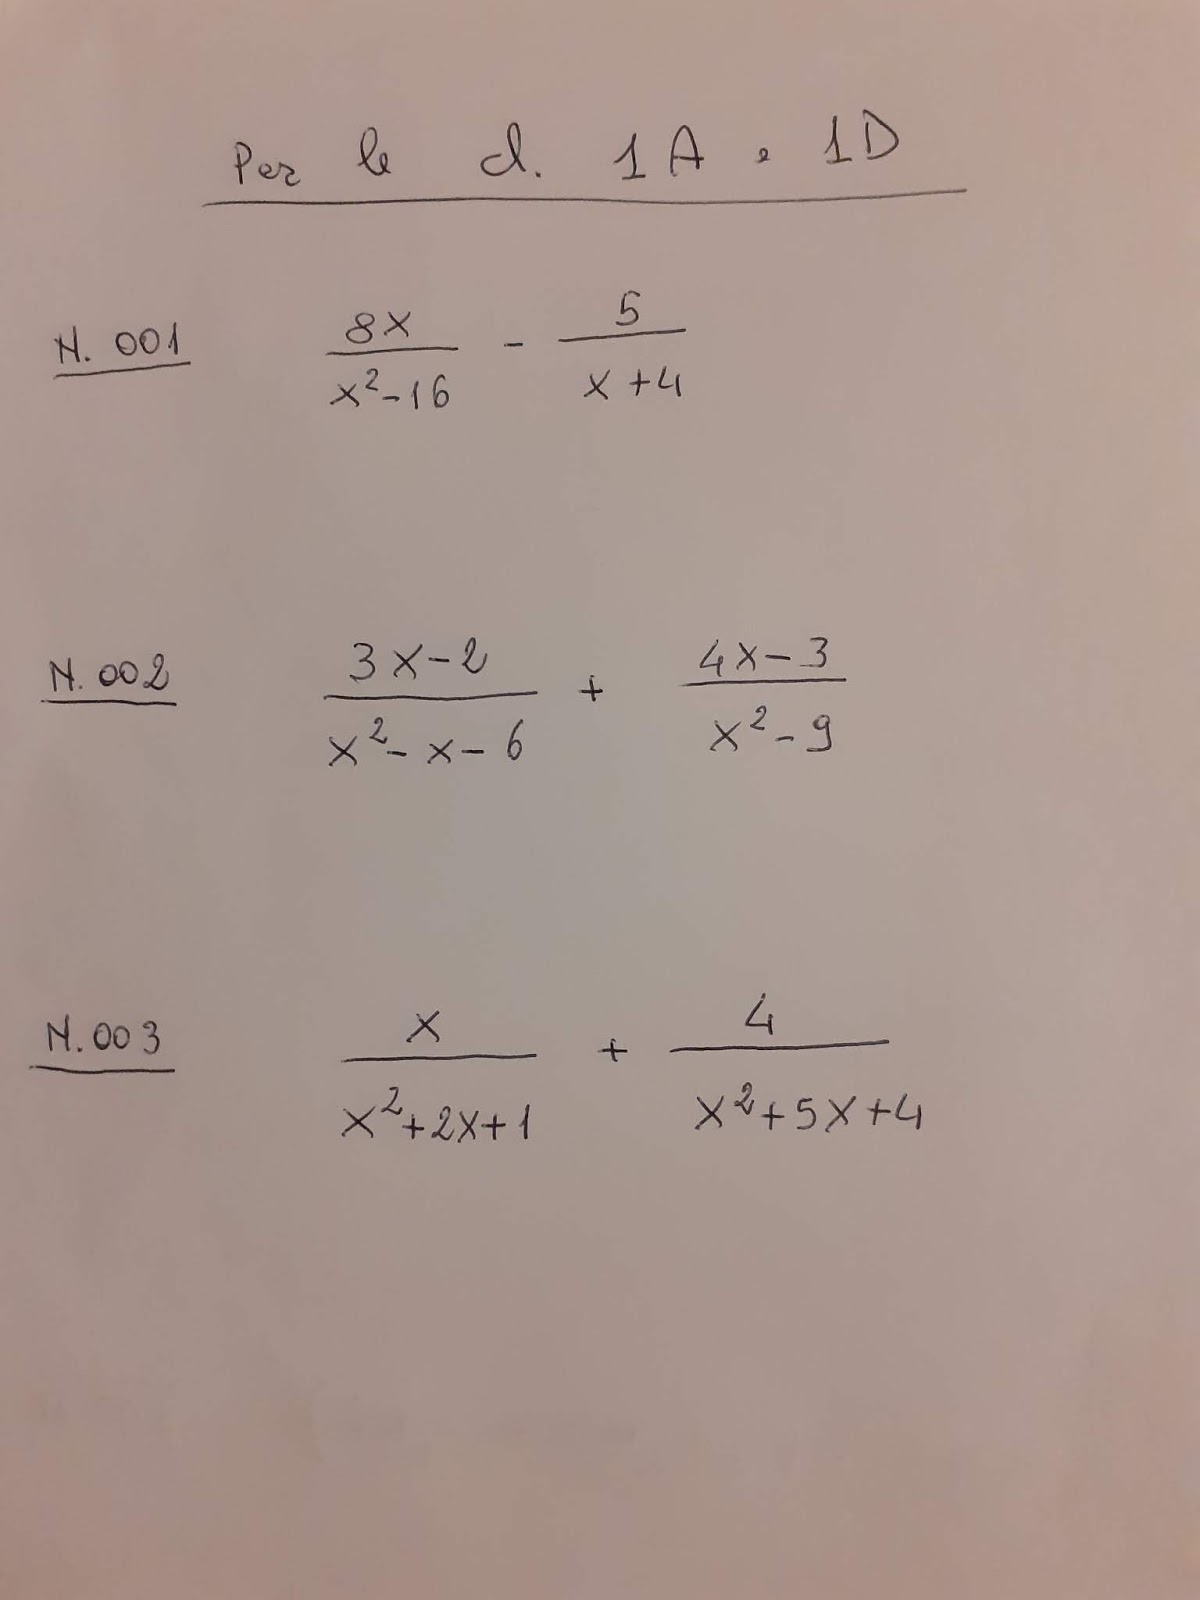 Per le cl. 1A e 1D
N. 001 8x/(x²-16) - 5/(x+4)
N. 002 (3x-2)/(x²-x-6) + (4x-3)/(x²-9)
N. 003 x/(x²+2x+1) + 4/(x²+5x+4)